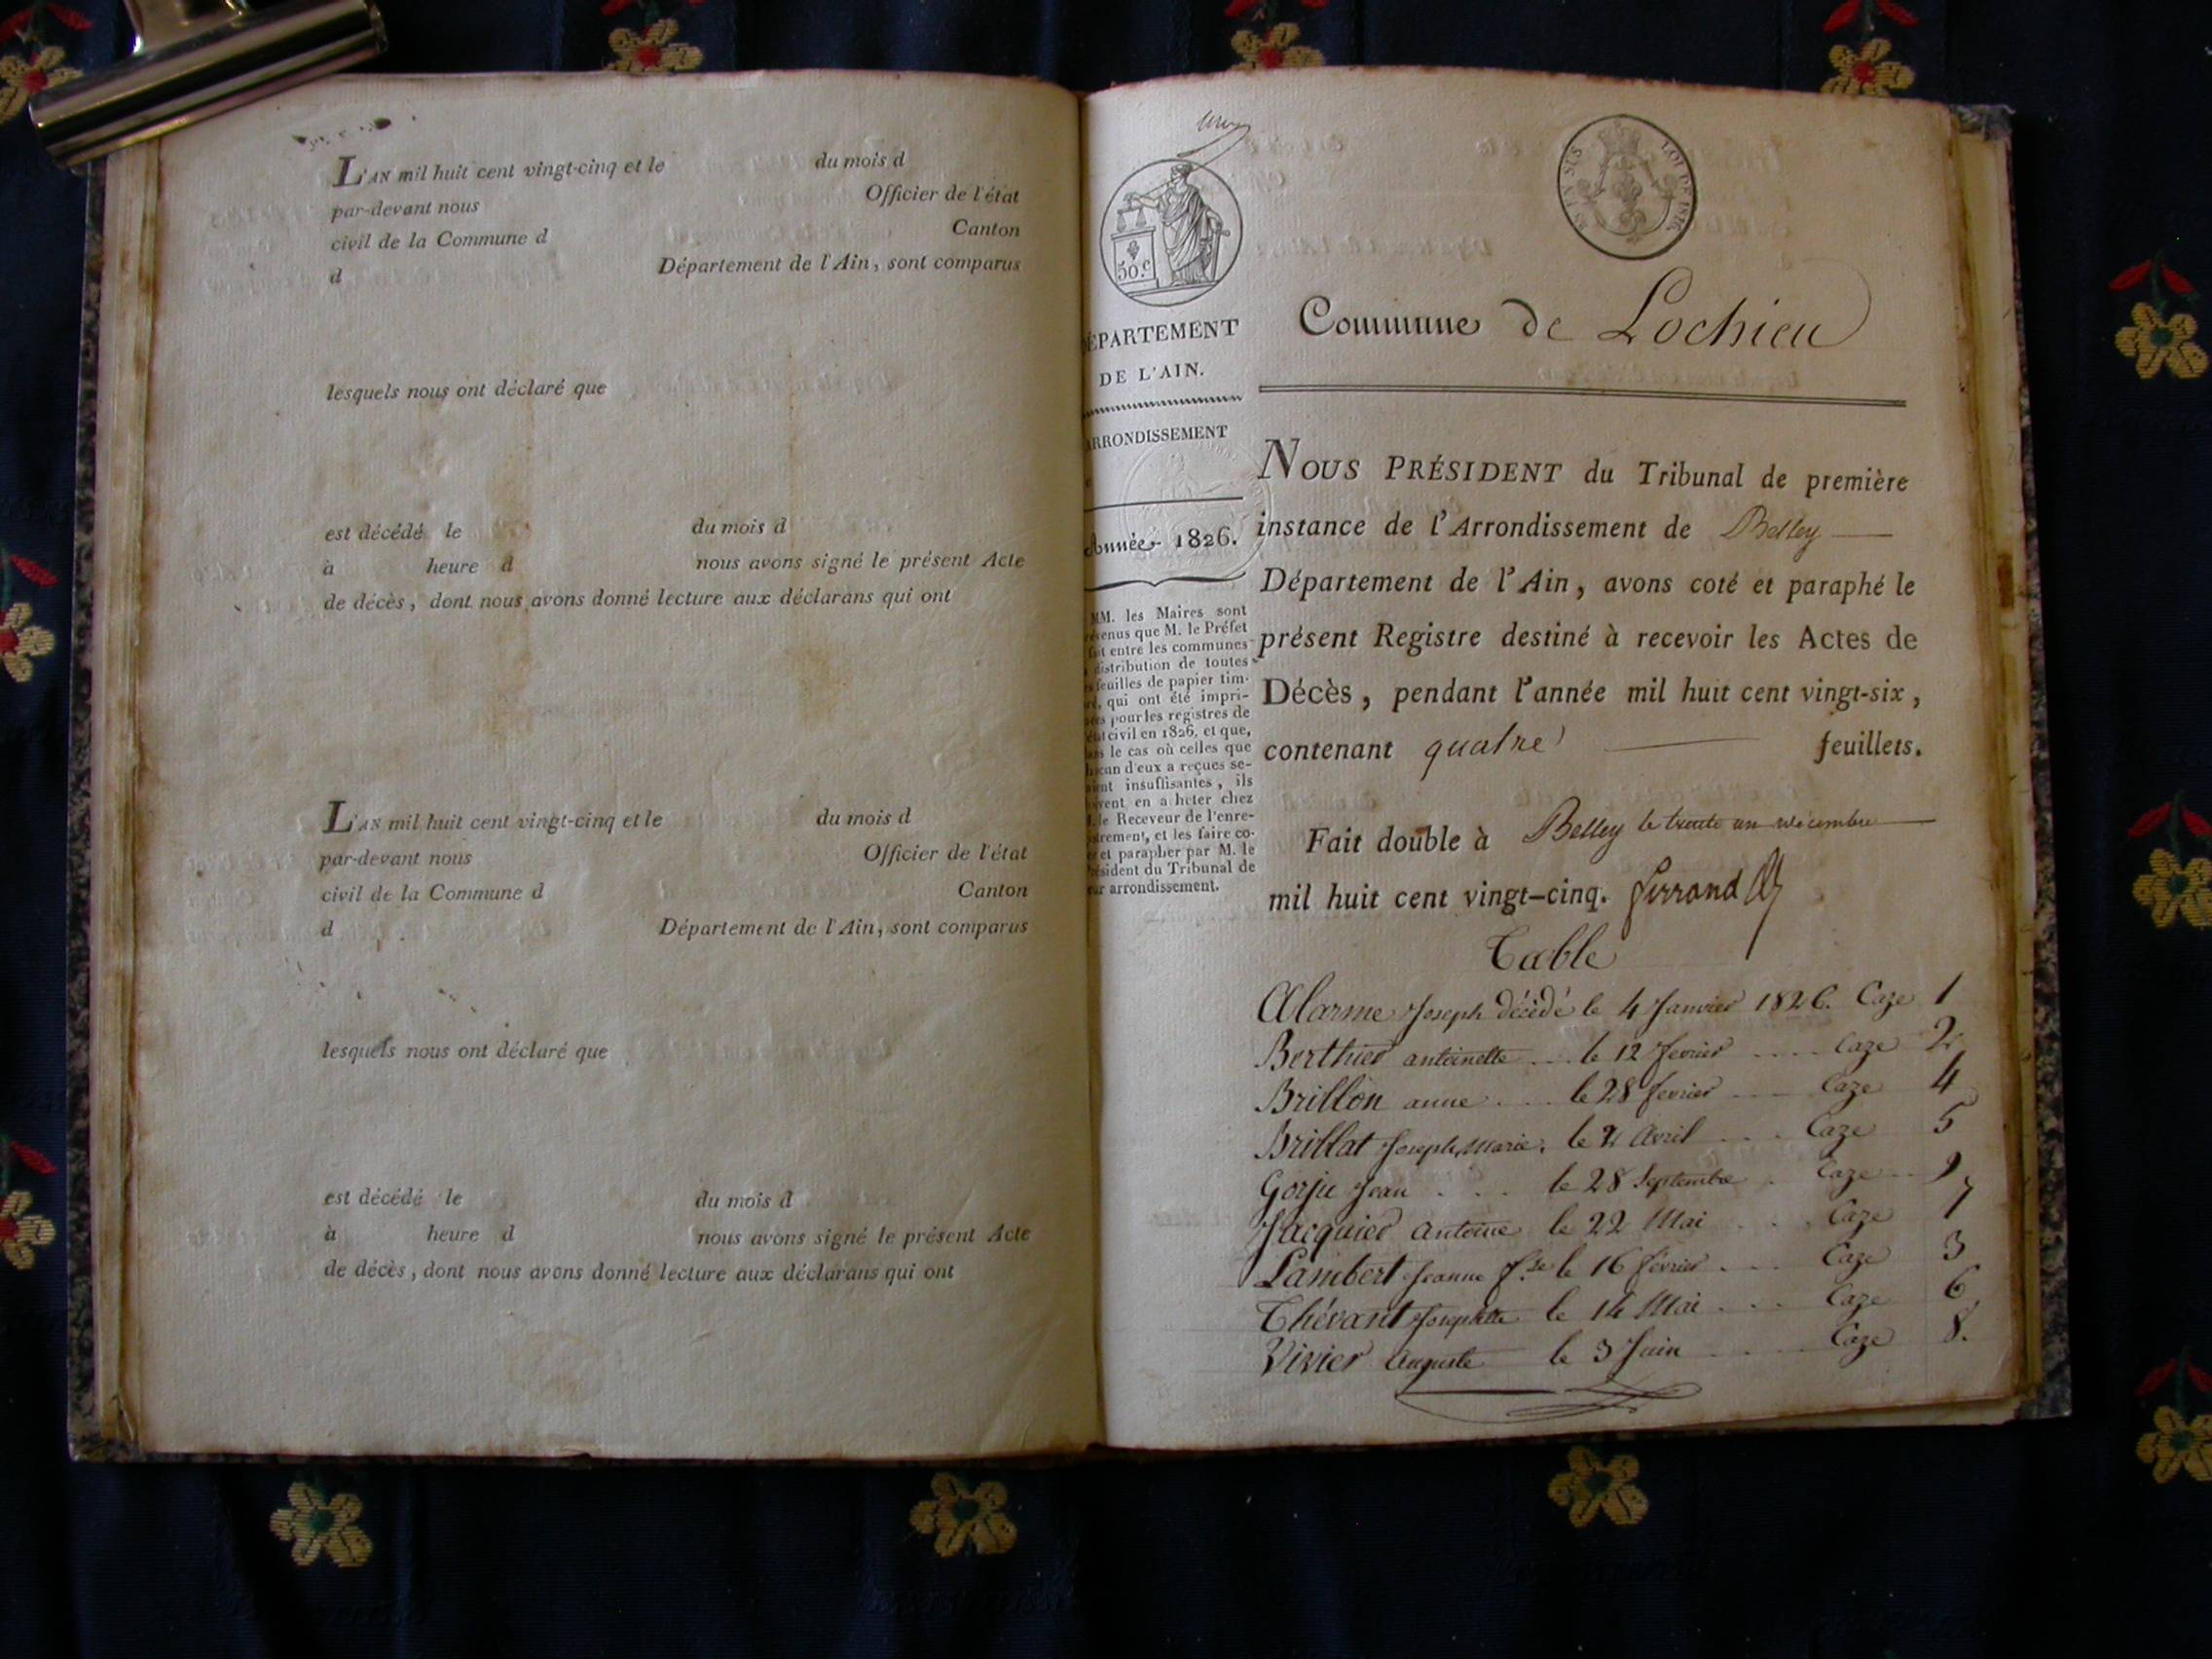 L'AN mil huit cent vingt-cinq et le du mois d
par-devant nous Officier de l'état
civil de la Commune d Canton
d Département de l'Ain, sont comparus
lesquels nous ont déclaré que
est décédé le du mois d
à heure d nous avons signé le présent Acte
de décès, dont nous avons donné lecture aux déclarans qui ont
L'AN mil huit cent vingt-cinq et le du mois d
par-devant nous Officier de l'état
civil de la Commune d Canton
d Département de l'Ain, sont comparus
lesquels nous ont déclaré que
est décédé le du mois d
à heure d nous avons signé le présent Acte
de décès, dont nous avons donné lecture aux déclarans qui ont
50.c
DÉPARTEMENT
DE L'AIN.
ARRONDISSEMENT
Année 1826.
MM. les Maires sont
que M. le Préfet
entre les communes
distribution de toutes
feuilles de papier tim-
qui ont été impri-
pour les registres de
civil en 1826, et que,
le cas où celles que
d'eux a reçues se-
insuffisantes, ils
en a heter chez
le Receveur de l'enre-
et les faire co-
et parapher par M. le
Président du Tribunal de
arrondissement.
LOI DE 1816
Commune de Lochieu
NOUS PRÉSIDENT du Tribunal de première
instance de l'Arrondissement de Belley
Département de l'Ain, avons coté et paraphé le
présent Registre destiné à recevoir les Actes de
Décès, pendant l'année mil huit cent vingt-six,
contenant quatre feuillets.
Fait double à Belley le trente un décembre
mil huit cent vingt-cinq. Ferrand
Table
Alarme Joseph décédé le 4 Janvier 1826. Caze 1
Berthier antoinette .... le 12 fevrier .... Caze 2
Brillon anne .... le 28 fevrier .... Caze 4
Brillat Joseph Marie. le 2 Avril ... Caze 5
Gorju Jean .... le 28 Septembre . Caze .. 9
Jacquier Antoine le 22 Mai ... Caze 7
Lambert Jeanne f.se le 16 février .... Caze 3
Thévant Josephte le 14 Mai .... Caze 6
Vivier Auguste le 3 Juin .... Caze 8.